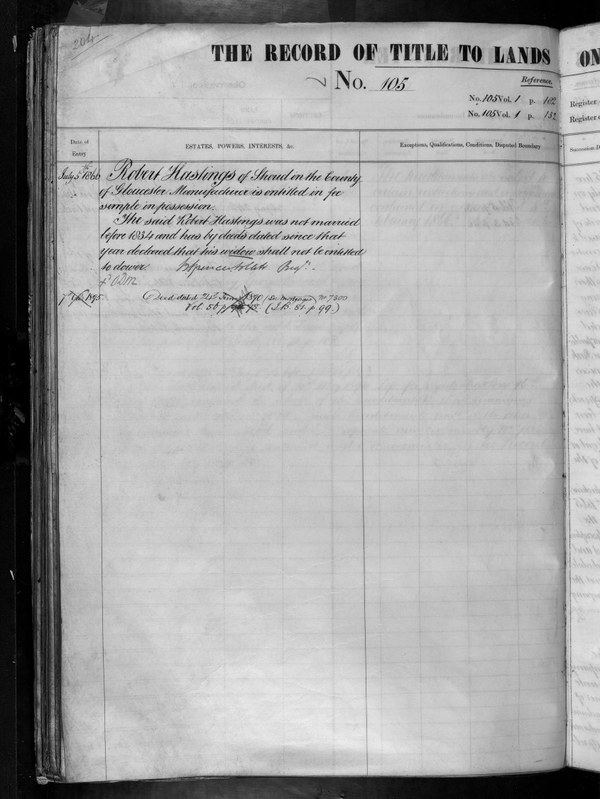 204
THE RECORD OF TITLE TO LANDS
No. 105
Reference.
No. 105 Vol. 1 p. 162
No. 105 Vol. 1 p. 152
Date of Entry
ESTATES, POWERS, INTERESTS, &c.
Exceptions, Qualifications, Conditions, Disputed Boundary
July 5th 186
Robert Hastings of Stroud in the County
of Gloucester Manufacturer is entitled in fee
simple in possession.
The said Robert Hastings was not married
before 1834 and has by deeds dated since that
year declared that his widow shall not be entitled
to dower.
Deed dated 1890
Vol 50 p (I.B. 81. p 99.)
ON
Register
Register
Possession